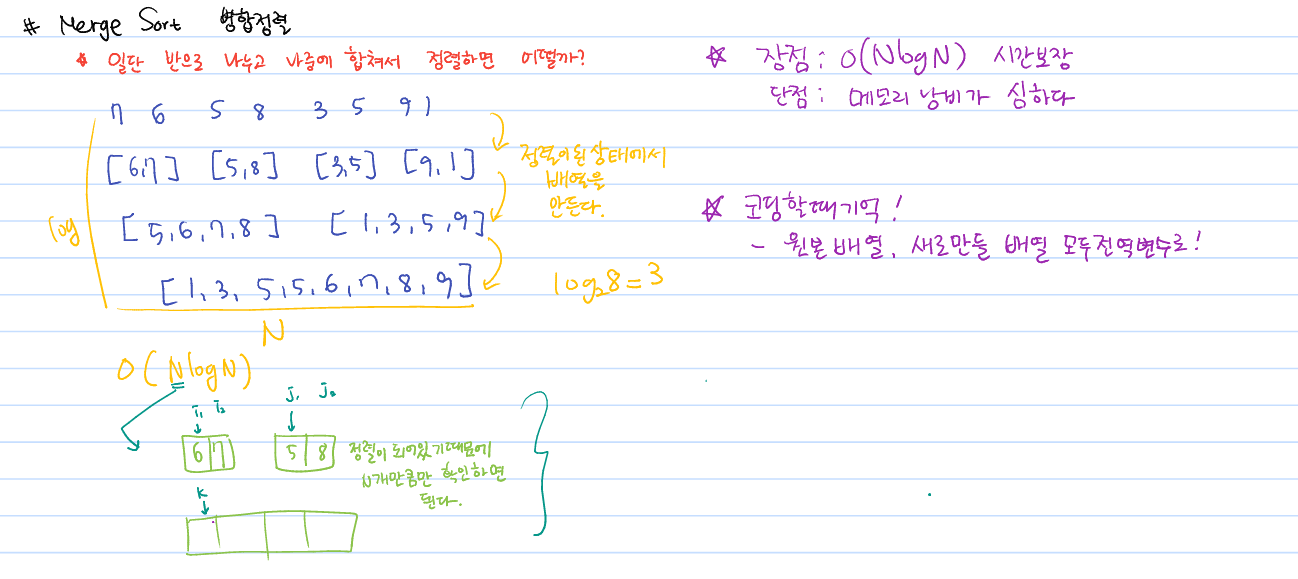 # Merge Sort 병합정렬
* 일단 반으로 나누고 나중에 합쳐서 정렬하면 어떨까?
7 6 5 8 3 5 9 1
[6,7] [5,8] [3,5] [9,1]
정렬이된상태에서
배열을
만든다.
log
[5,6,7,8] [1,3,5,9]
[1,3,5,5,6,7,8,9]
log₂8=3
N
O(NlogN)
i₁ i₂ j₁ j₂
6 7 5 8
정렬이 되어있기때문에
N개만큼만 확인하면
된다.
K
☆ 장점 : O(NlogN) 시간보장
단점 : 메모리 낭비가 심하다
☆ 코딩할때기억!
- 원본배열, 새로만들 배열 모두전역변수로!